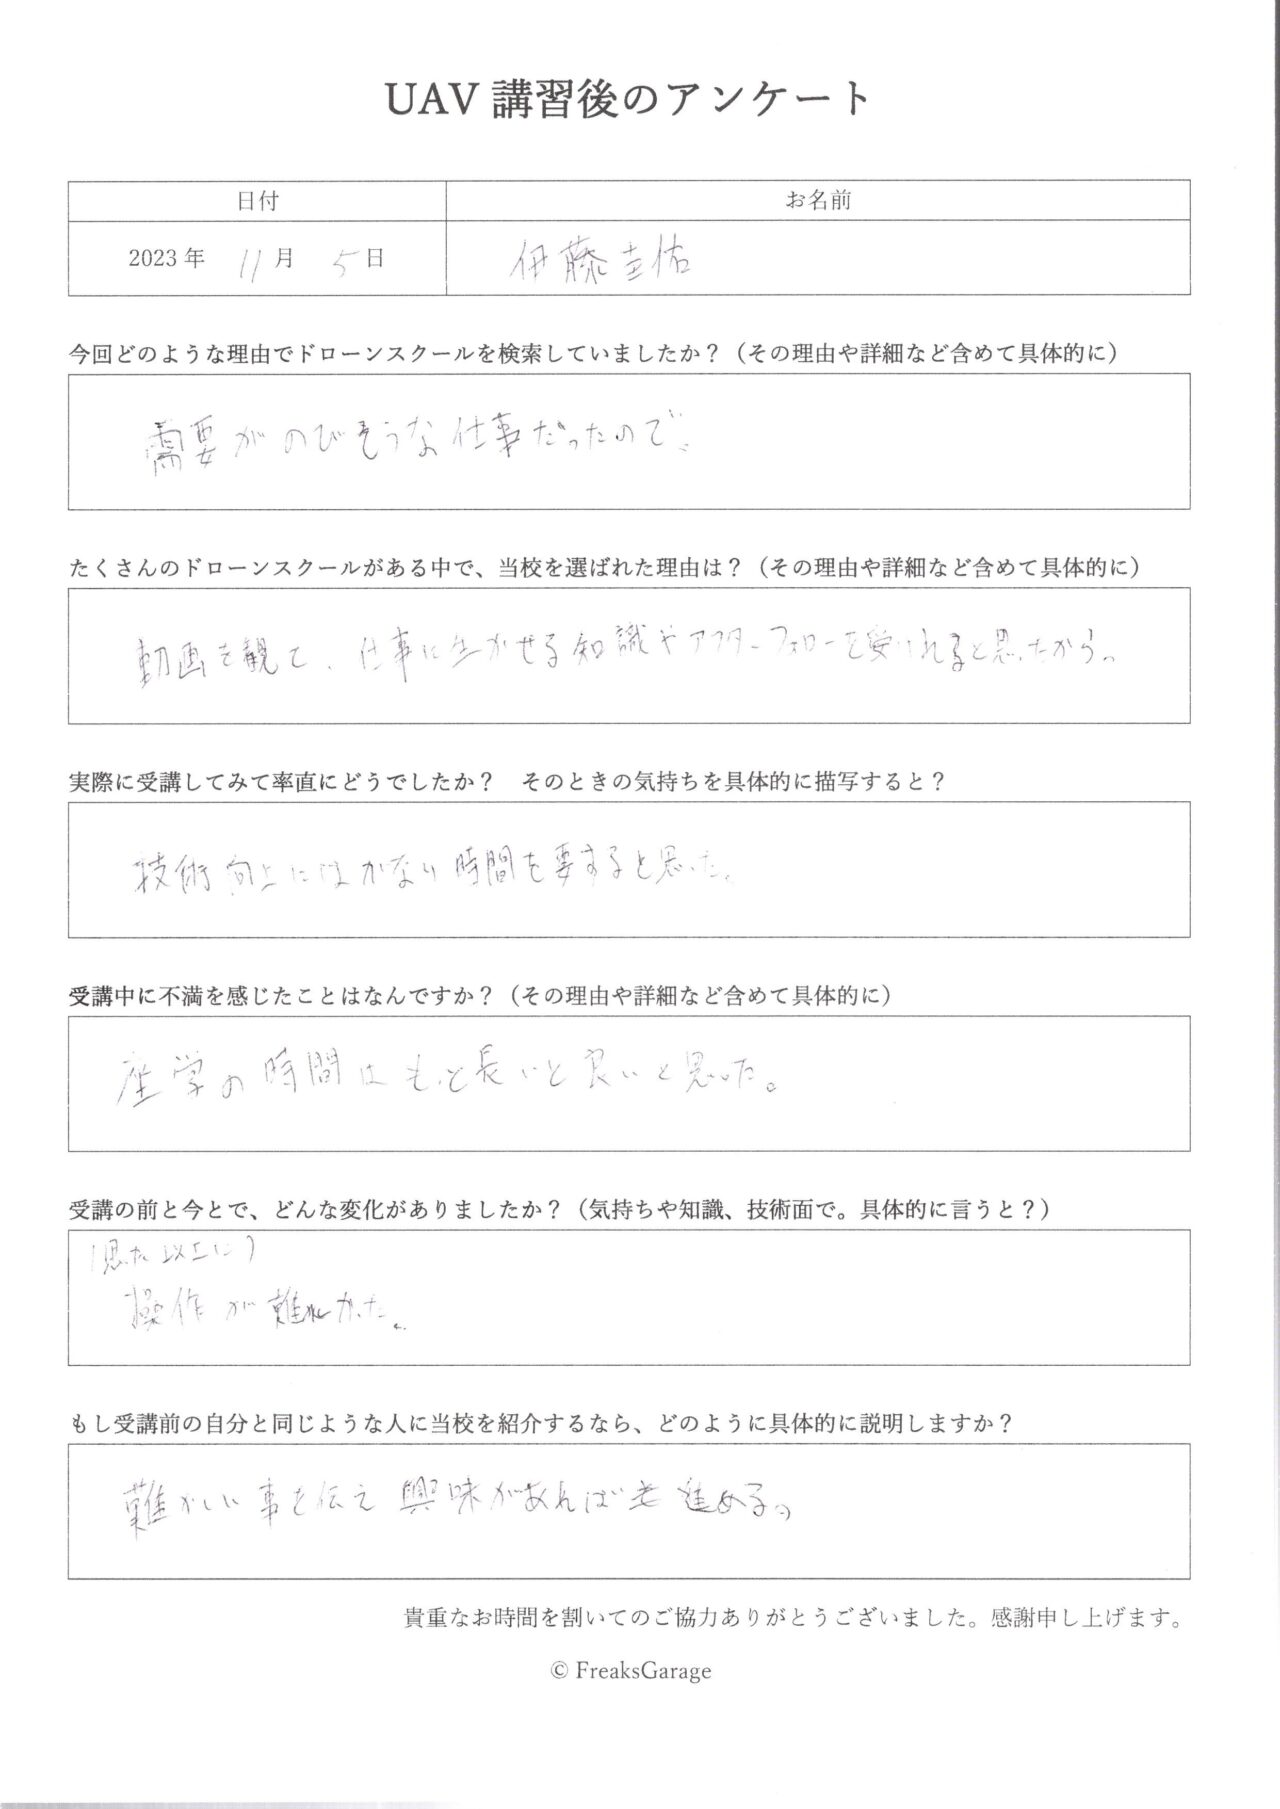 UAV 講習後のアンケート
日付 お名前
2023 年 11 月 5 日 伊藤圭佑
今回どのような理由でドローンスクールを検索していましたか？（その理由や詳細など含めて具体的に）
需要がのびそうな仕事だったので。
たくさんのドローンスクールがある中で、当校を選ばれた理由は？（その理由や詳細など含めて具体的に）
動画を観て、仕事に生かせる知識やアフターフォローを受けれると思ったから。
実際に受講してみて率直にどうでしたか？　そのときの気持ちを具体的に描写すると？
技術向上にはかなり時間を要すると思った。
受講中に不満を感じたことはなんですか？（その理由や詳細など含めて具体的に）
座学の時間はもっと長いと良いと思った。
受講の前と今とで、どんな変化がありましたか？（気持ちや知識、技術面で。具体的に言うと？）
（思った以上に）
操作が難しかった。
もし受講前の自分と同じような人に当校を紹介するなら、どのように具体的に説明しますか？
難かしい事を伝え興味があれば進める。
貴重なお時間を割いてのご協力ありがとうございました。感謝申し上げます。
© FreaksGarage